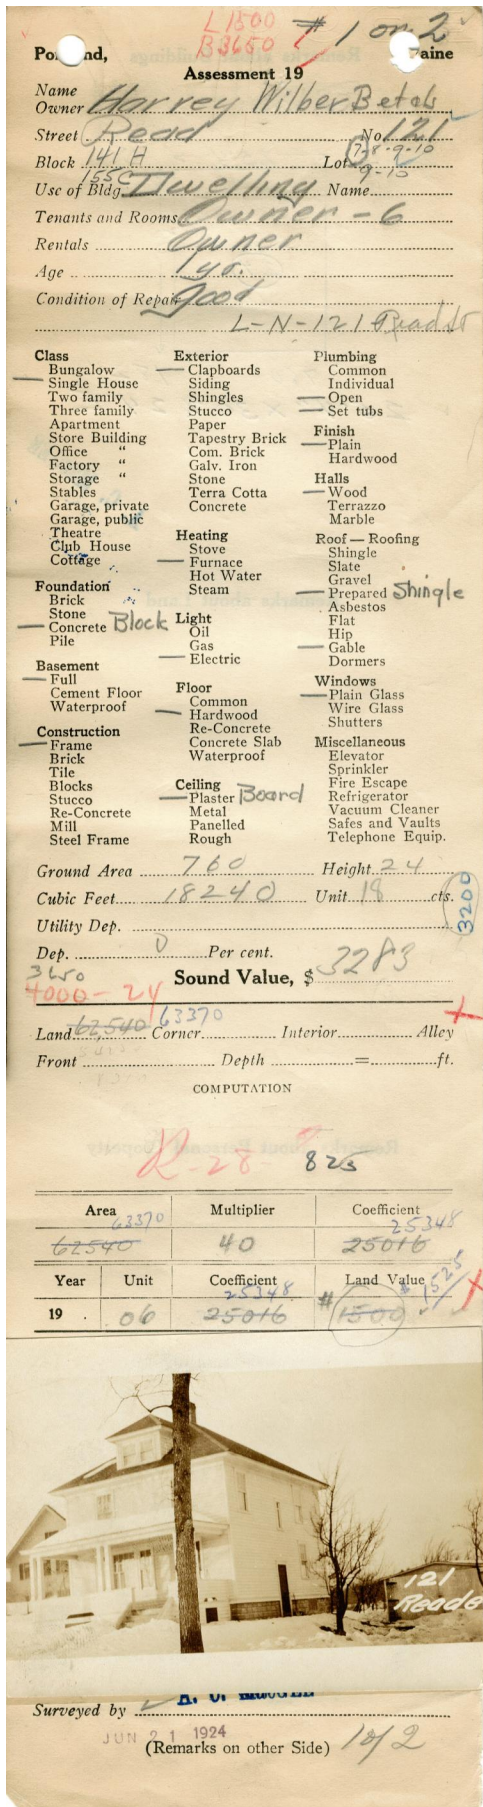 L 1500 # 1 on 2
B 3650
Po nd, aine
Assessment 19
Name
Owner Harrey Wilber Betab
Street Read No. 121
Block 141 H Lot 7-8-9-10
155C 9-10
Use of Bldg. Dwelling Name
Tenants and Rooms Owner - 6
Rentals Owner
Age 1 yr.
Condition of Repair good
L-N-121 Read St
Class
Bungalow
Single House
Two family
Three family
Apartment
Store Building
Office "
Factory "
Storage "
Stables
Garage, private
Garage, public
Theatre
Club House
Cottage
Foundation
Brick
Stone
Concrete Block
Pile
Basement
Full
Cement Floor
Waterproof
Construction
Frame
Brick
Tile
Blocks
Stucco
Re-Concrete
Mill
Steel Frame
Exterior
Clapboards
Siding
Shingles
Stucco
Paper
Tapestry Brick
Com. Brick
Galv. Iron
Stone
Terra Cotta
Concrete
Heating
Stove
Furnace
Hot Water
Steam
Light
Oil
Gas
Electric
Floor
Common
Hardwood
Re-Concrete
Concrete Slab
Waterproof
Ceiling
Plaster Board
Metal
Panelled
Rough
Plumbing
Common
Individual
Open
Set tubs
Finish
Plain
Hardwood
Halls
Wood
Terrazzo
Marble
Roof — Roofing
Shingle
Slate
Gravel
Prepared Shingle
Asbestos
Flat
Hip
Gable
Dormers
Windows
Plain Glass
Wire Glass
Shutters
Miscellaneous
Elevator
Sprinkler
Fire Escape
Refrigerator
Vacuum Cleaner
Safes and Vaults
Telephone Equip.
Ground Area 760 Height 24
Cubic Feet 18240 Unit 18 cts.
3200
Utility Dep.
Dep. 0 Per cent.
3650 Sound Value, $ 3283
4000 - 24
Land 62,540 63370 Corner Interior Alley
Front Depth = ft.
COMPUTATION
R-28 825
Area Multiplier Coefficient
63370 25348
62540 40 25016
Year Unit Coefficient Land Value
25348 $1525
19 . 06 25016 #1500
121
Reade
Surveyed by
JUN 21 1924
(Remarks on other Side) 1 of 2